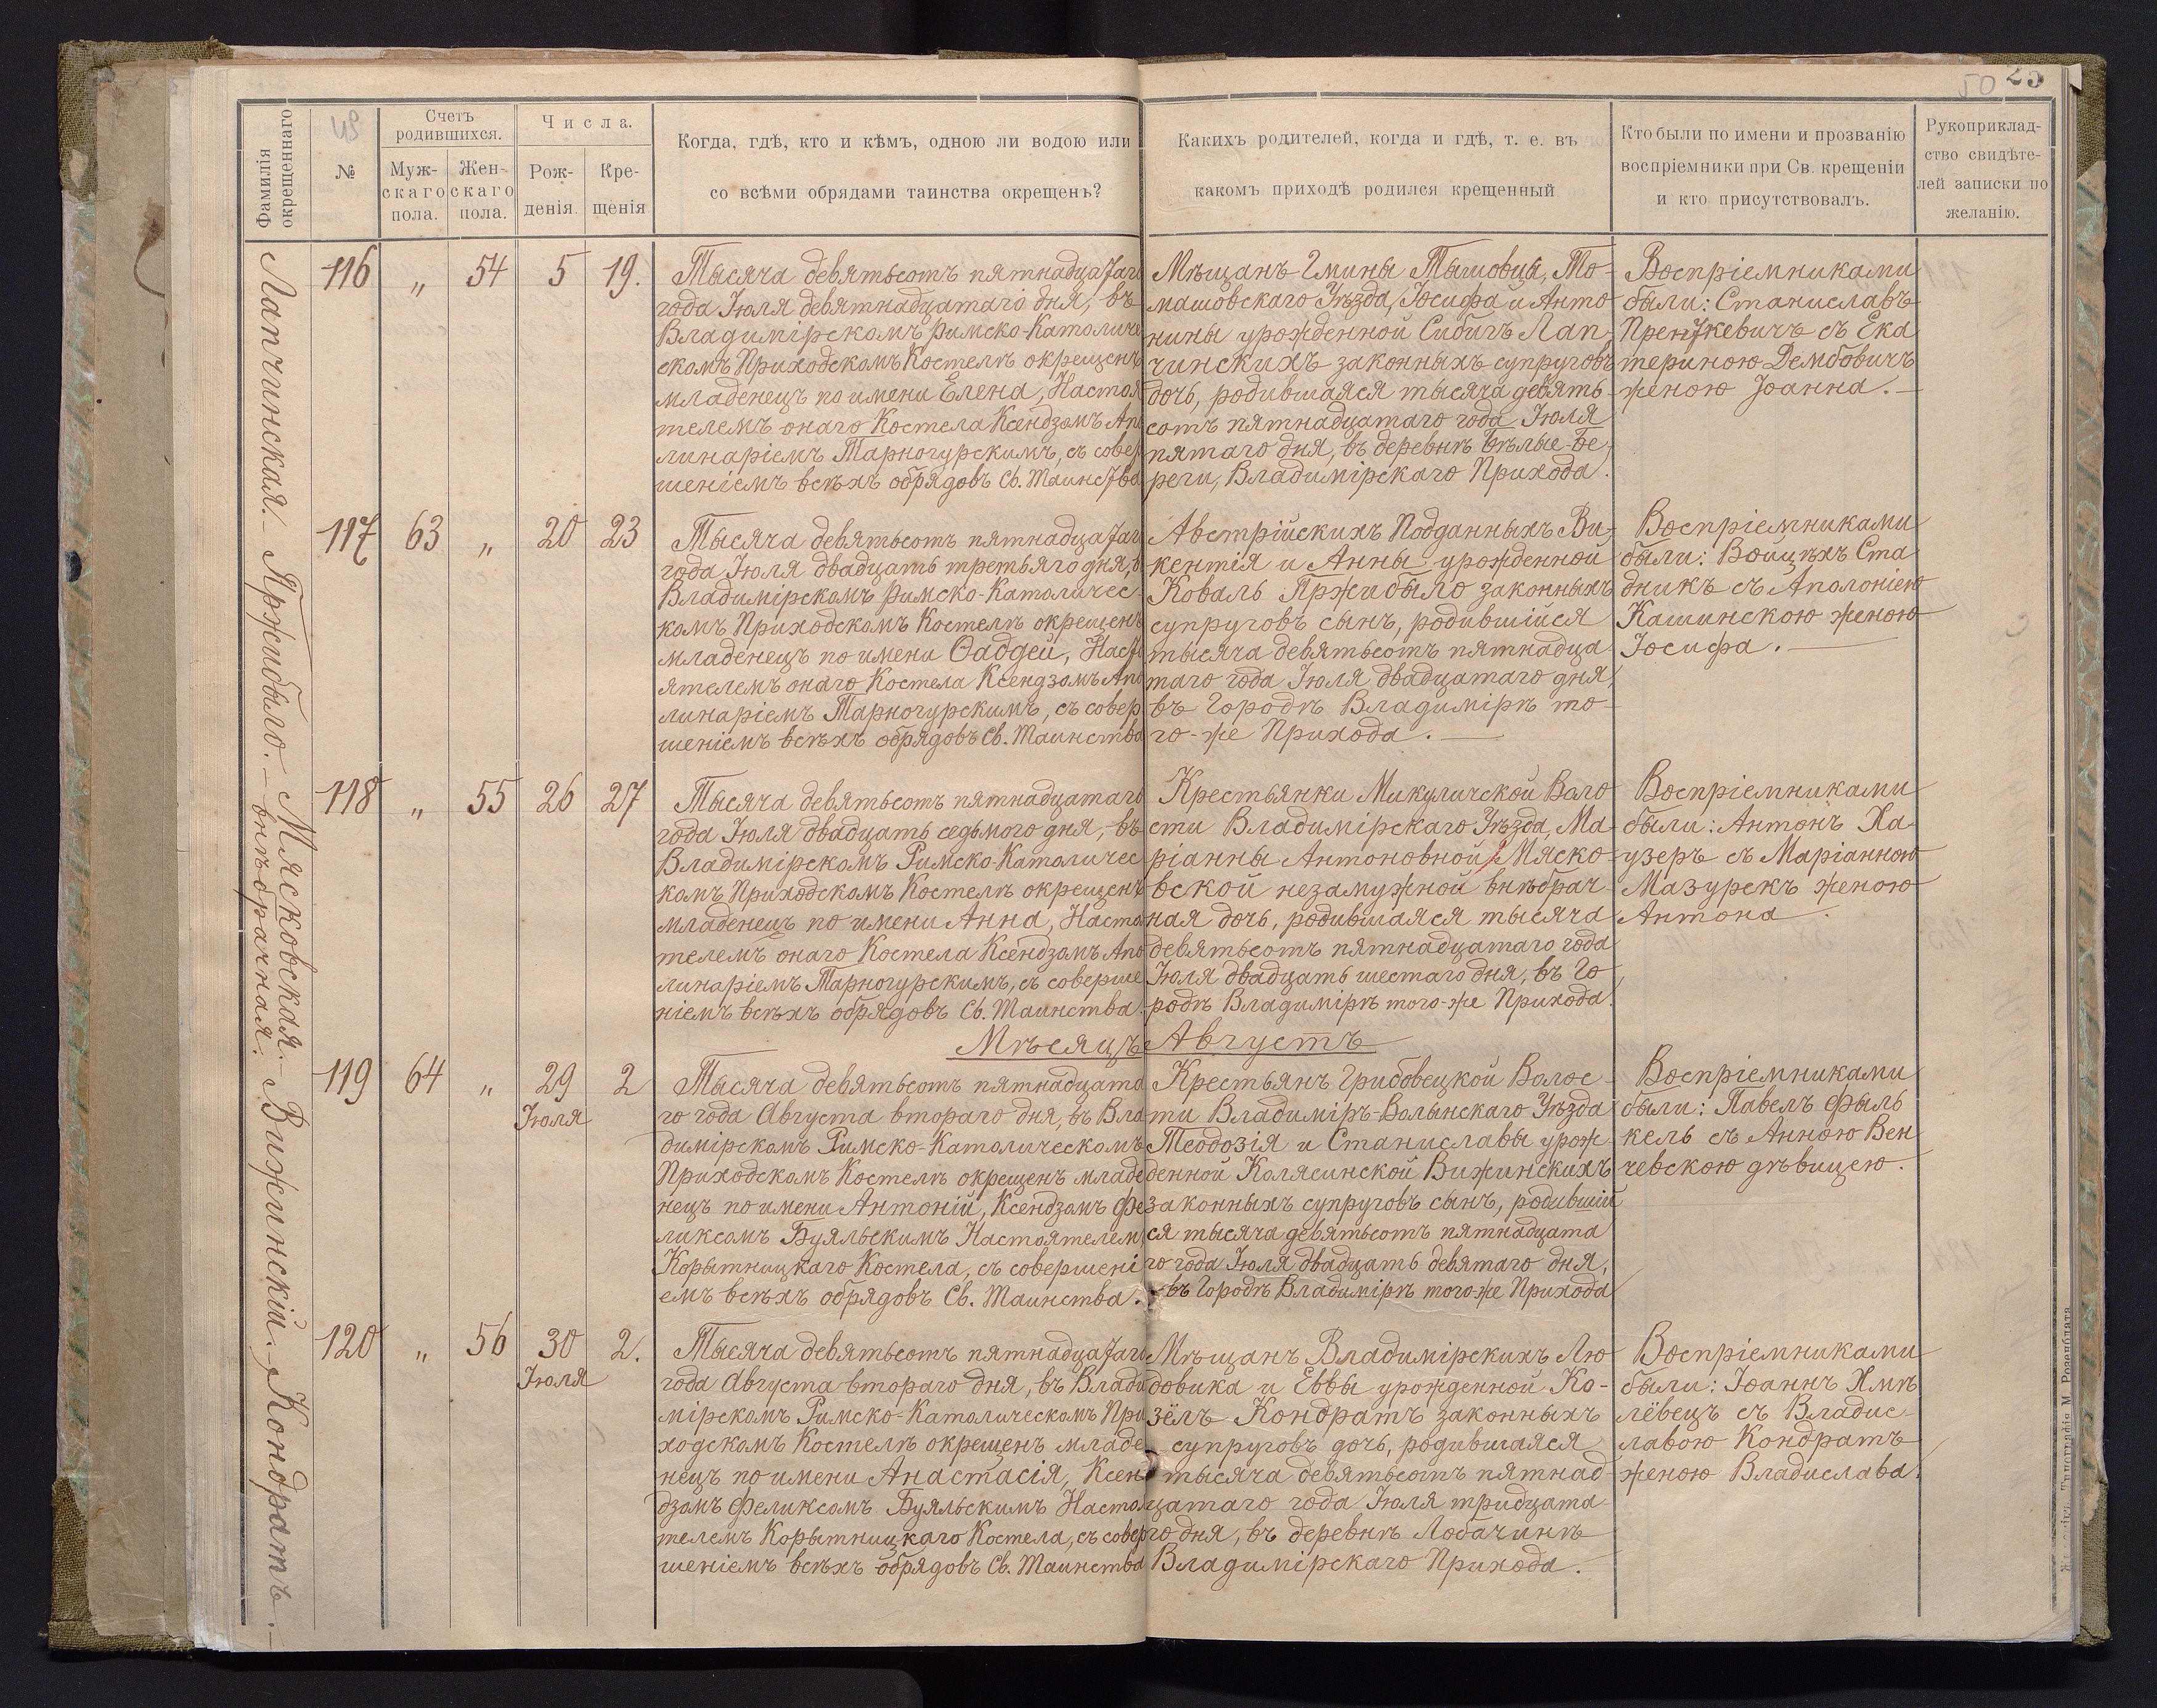 50 25
49
Фамилія
окрещеннаго
№
Счетъ
родившихся.
Муж-
скаго
пола.
Жен-
скаго
пола.
Числа.
Рож-
денія.
Кре-
щенія
Когда, гдѣ, кто и кѣмъ, одною ли водою или
со всѣми обрядами таинства окрещенъ?
Какихъ родителей, когда и гдѣ, т. е. въ
какомъ приходѣ родился крещенный
Кто были по имени и прозванію
воспріемники при Св. крещеніи
и кто присутствовалъ.
Рукоприклад-
ство свидѣте-
лей записки по
желанію.
Лапчинская.
116 „ 54 5 19.
Тысяча девятьсотъ пятнадцатаго
года Іюля девятнадцатаго дня, въ
Владимірскомъ Римско-Католиче
скомъ Приходскомъ Костелѣ окрещенъ
младенецъ по имени Елена, Настоя
телемъ онаго Костела Ксендзомъ Апо
линаріемъ Тарногурскимъ, съ совер
шеніемъ всѣхъ обрядовъ Св. Таинства
Мѣщанъ Гмины Тышовцы, То-
машовскаго Уѣзда, Іосифа и Анто
нины урожденной Сибигъ Лап-
чинскихъ законныхъ супруговъ
дочь, родившаяся тысяча девять-
сотъ пятнадцатаго года Іюля
пятаго дня, въ деревнѣ Бѣлые-Бе-
реги, Владимірскаго Прихода.
Воспріемниками
были: Станиславъ
Пренткевичъ съ Ека
териною Дембовичъ
женою Іоанна.
Пржибыло.
117 63 „ 20 23
Тысяча девятьсотъ пятнадцатаго
года Іюля двадцать третьяго дня, въ
Владимірскомъ Римско-Католичес-
комъ Приходскомъ Костелѣ окрещенъ
младенецъ по имени Фаддей, Насто
ятелемъ онаго Костела Ксендзомъ Апо
линаріемъ Тарногурскимъ, съ совер
шеніемъ всѣхъ обрядовъ Св. Таинства
Австрійскихъ Подданныхъ Ви-
кентія и Анны урожденной
Коваль Пржибыло законныхъ
супруговъ сынъ, родившійся
тысяча девятьсотъ пятнадца
таго года Іюля двадцатаго дня,
въ Городѣ Владимірѣ то-
го-же Прихода.
Воспріемниками
были: Войцѣхъ Ста
дникъ съ Аполоніею
Кашинскою женою
Іосифа.
Мясковская.
внѣбрачная.
118 „ 55 26 27
Тысяча девятьсотъ пятнадцатаго
года Іюля двадцать седьмого дня, въ
Владимірскомъ Римско-Католичес
комъ Приходскомъ Костелѣ окрещенъ
младенецъ по имени Анна, Настоя
телемъ онаго Костела Ксендзомъ Апо
линаріемъ Тарногурскимъ, съ соверше
ніемъ всѣхъ обрядовъ Св. Таинства.
Крестьянки Микуличской Воло
сти Владимірскаго Уѣзда, Ма-
ріанны Антоновной Мяско-
вской незамужной внѣбрач-
ная дочь, родившаяся тысяча
девятьсотъ пятнадцатаго года
Іюля двадцать шестаго дня, въ Го
родѣ Владимірѣ того-же Прихода.
Воспріемниками
были: Антонъ Ха-
узеръ съ Маріанною
Мазурекъ женою
Антона.
Мѣсяцъ Августъ
Вижинскій.
119 64 „ 29 2
Іюля
Тысяча девятьсотъ пятнадцата
го года Августа втораго дня, въ Вла
димірскомъ Римско-Католическомъ
Приходскомъ Костелѣ окрещенъ младе
нецъ по имени Антоній, Ксендзомъ Фе
ликсомъ Буяльскимъ Настоятелемъ
Корытницкаго Костела, съ совершені
емъ всѣхъ обрядовъ Св. Таинства.
Крестьянъ Грибовецкой Волос-
ти Владиміръ-Волынскаго Уѣзда
Теодозія и Станиславы урож-
денной Колясинской Вижинскихъ
законныхъ супруговъ сынъ, родившій
ся тысяча девятьсотъ пятнадцата
го года Іюля двадцать девятаго дня,
въ Городѣ Владимірѣ того же Прихода
Воспріемниками
были: Павелъ Филь
кель съ Анною Вен
чевскою дѣвицею.
Кондратъ.
120 „ 56 30 2.
Іюля
Тысяча девятьсотъ пятнадцатаго
года Августа втораго дня, въ Влади
мірскомъ Римско-Католическомъ При
ходскомъ Костелѣ окрещенъ младе
нецъ по имени Анастасія, Ксен
дзомъ Феликсомъ Буяльскимъ Настоя
телемъ Корытницкаго Костела, съ совер
шеніемъ всѣхъ обрядовъ Св. Таинства
Мѣщанъ Владимірскихъ Лю
довика и Еввы урожденной Ко-
зёлъ Кондратъ законныхъ
супруговъ дочь, родившаяся
тысяча девятьсотъ пятнад-
цатаго года Іюля тридцата-
го дня, въ деревнѣ Лобачинѣ
Владимірскаго Прихода.
Воспріемниками
были: Іоаннъ Хмѣ
лёвецъ съ Владис-
лавою Кондратъ
женою Владислава.
Типографія М. Розенблата